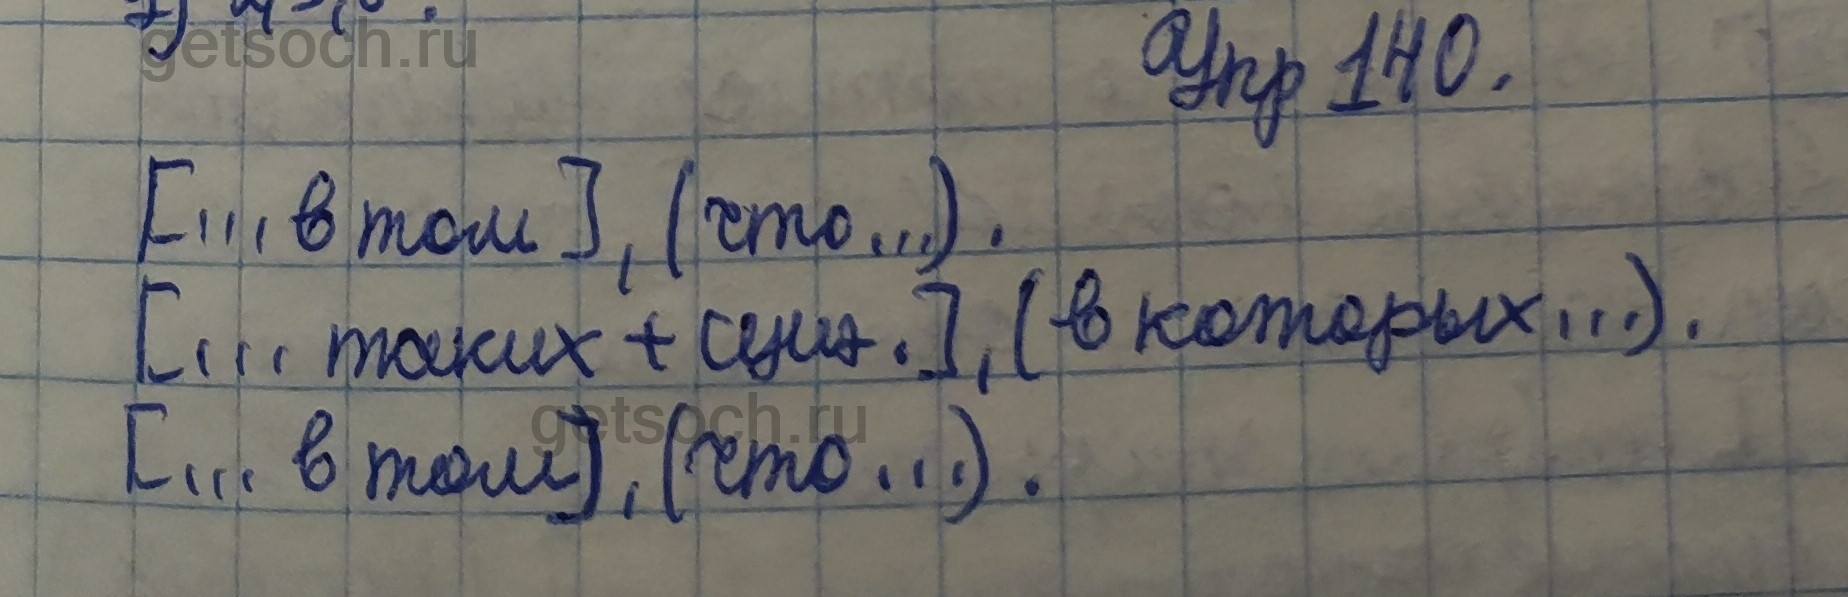 getsoch.ru
Упр 140.
[... в том], (что...).
[... таких + сущ.], (в которых...).
getsoch.ru
[... в том], (что...).